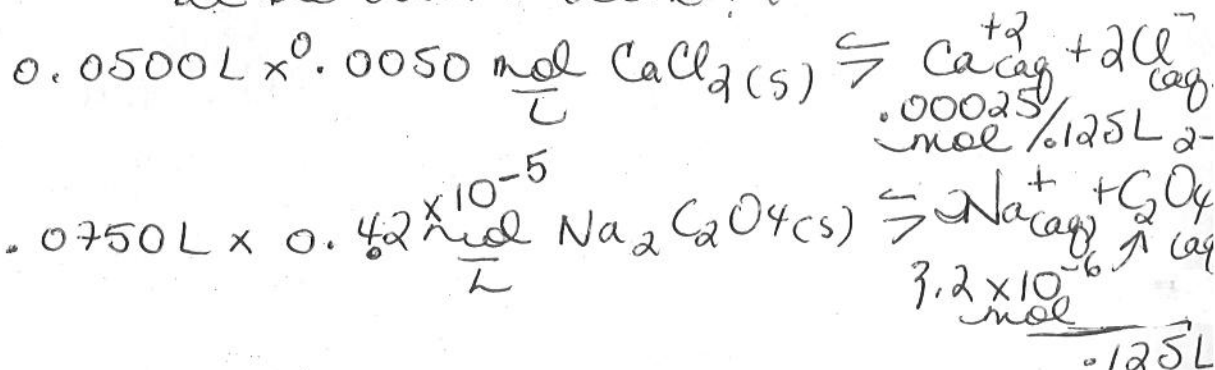 0.0500L x 0.0050 mol/L CaCl2(s) ⇌ Ca+2(aq) + 2Cl-(aq)
.00025 mol/.125L
.0750L x 0.42 x10-5 mol/L Na2C2O4(s) ⇌ 2Na+(aq) + C2O4 2-(aq)
3.2 x10-6 mol ↑
.125L